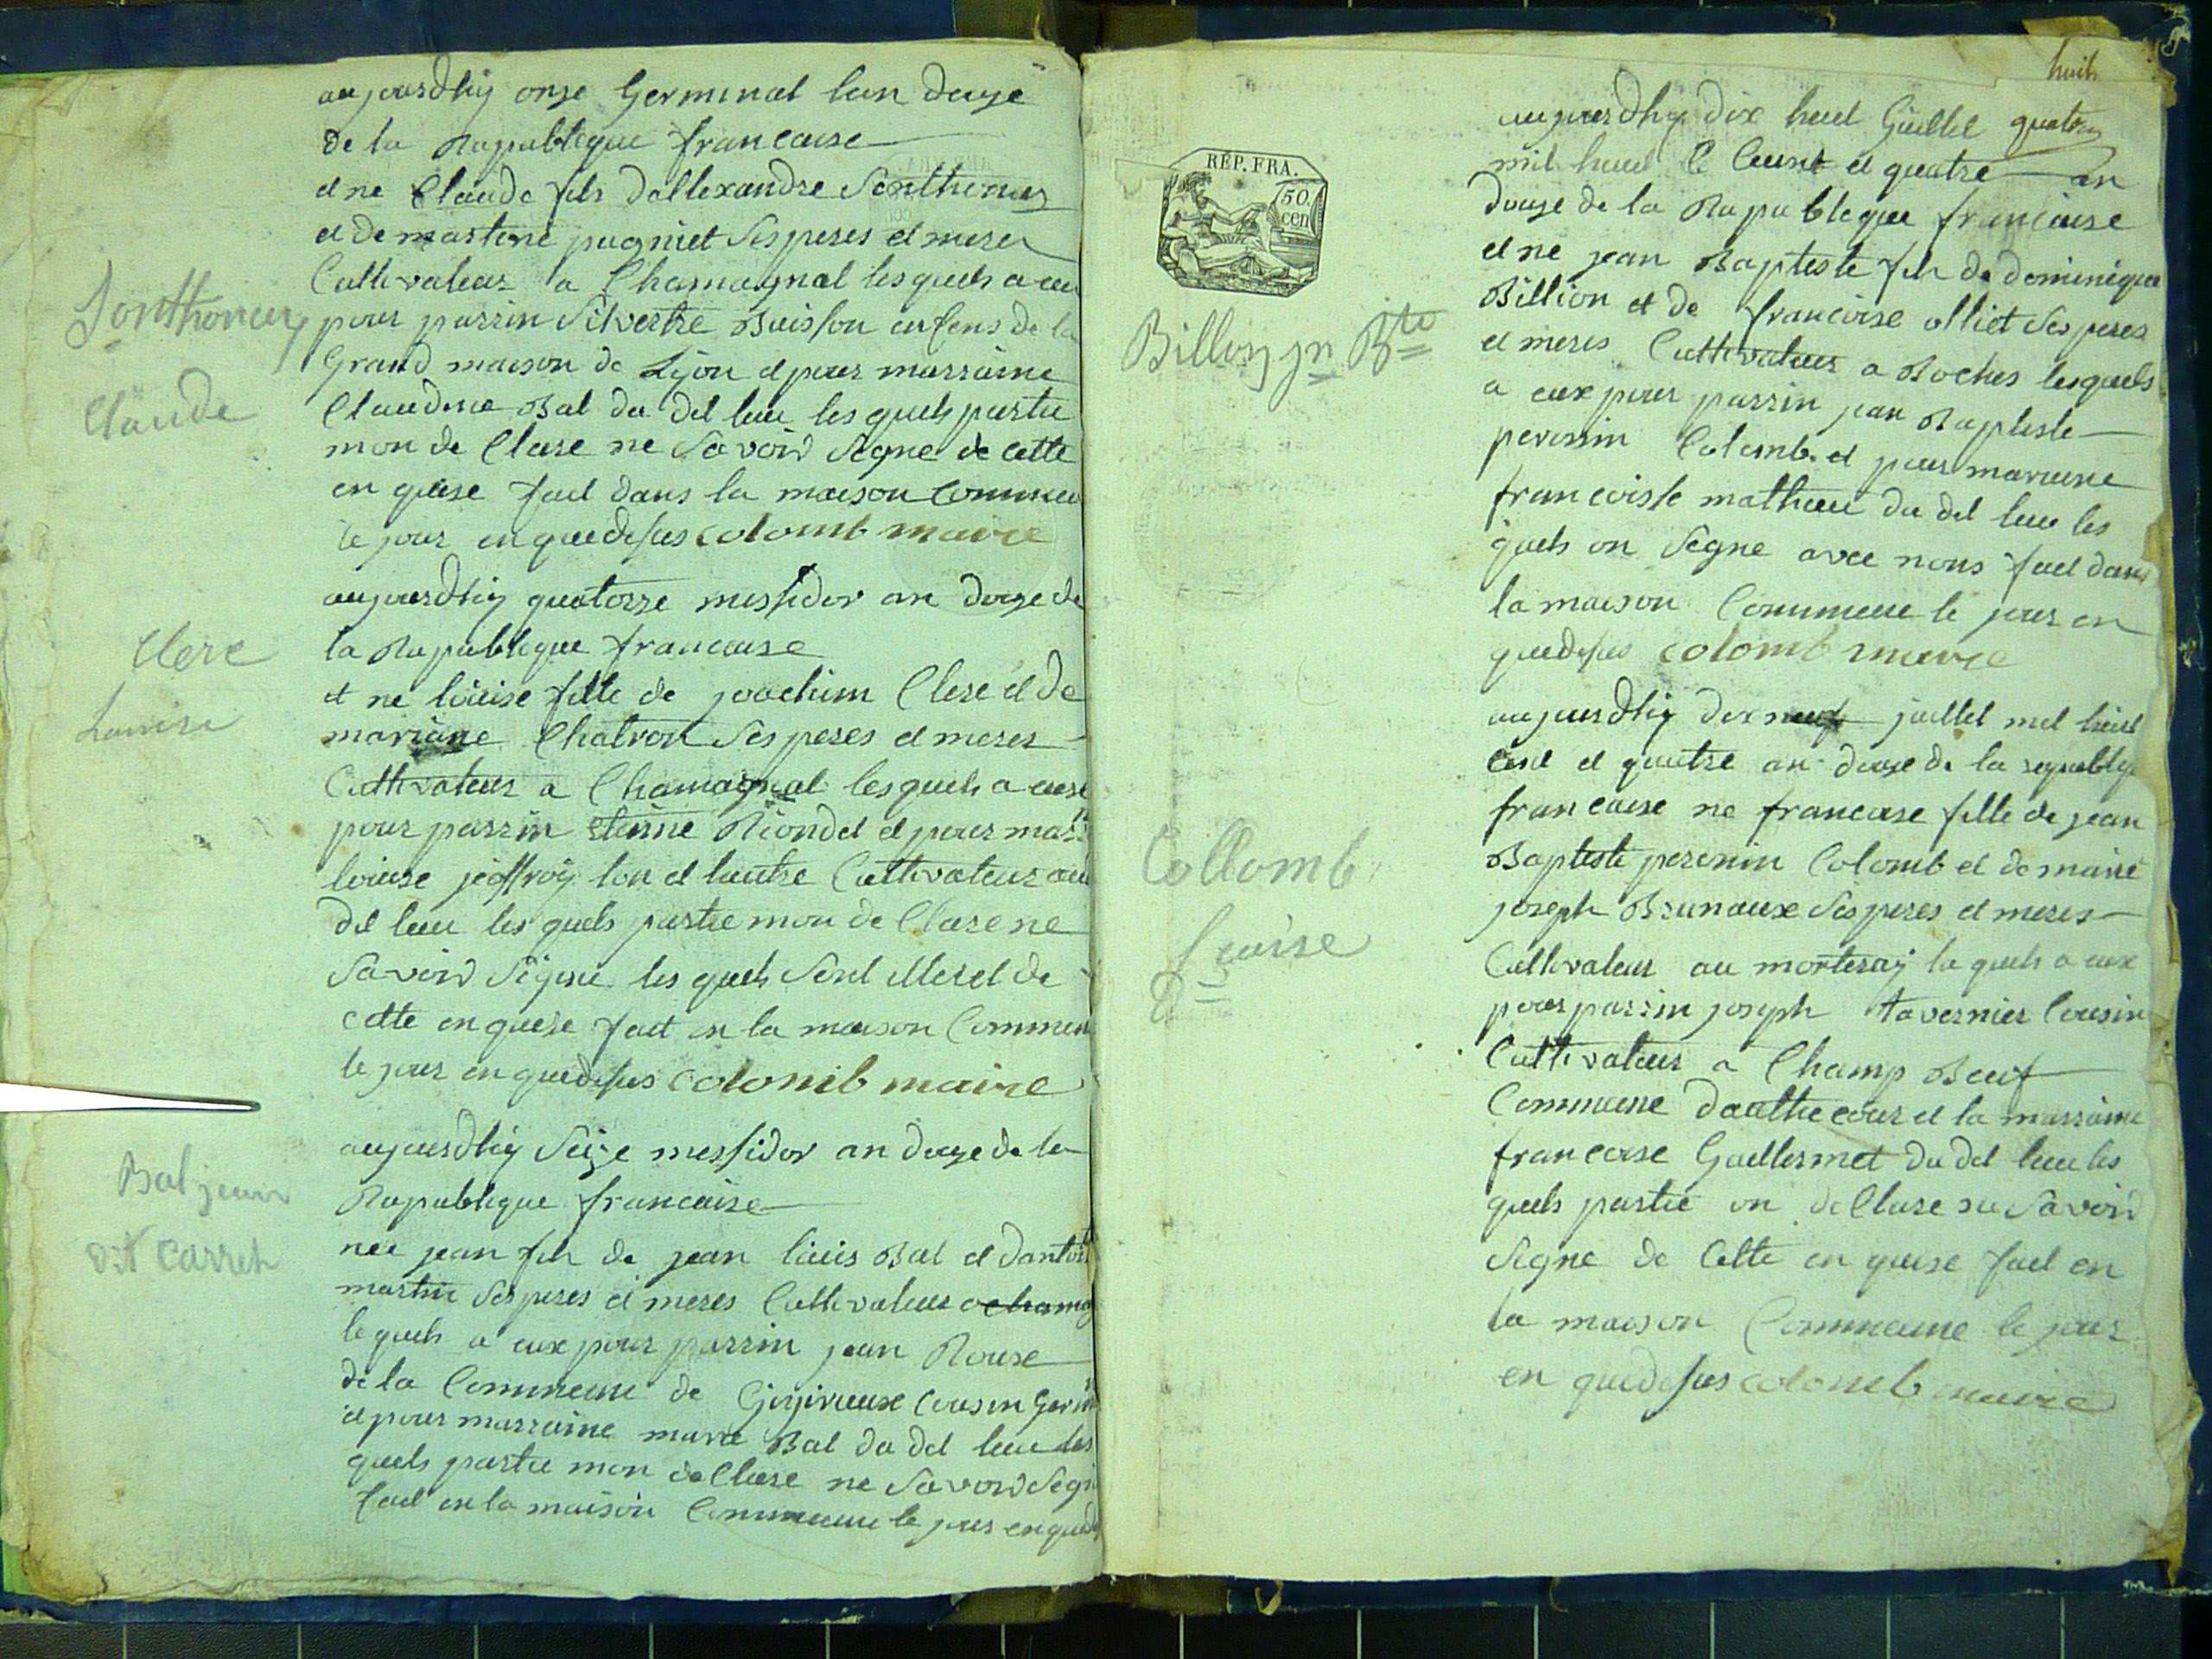 aujourdhy onze Germinal lan douze
de la Rapubleque francaise
et ne Claude fils dallexandre Sonthonax
et de martene pugniet Ses peres et meres
Cultivateur a Chamagnat les quels a eu
pour parrin Silvestre Buisson enfens de la
Grand maison de Lyon et pour marraine
Claudine Bal du dit lieu les quels partie
mon de Clare ne Savoir Segne de cette
en quise fait dans la maison Commeu
le jour en quedesus colomb maire
Sonthonax
Claude
aujourdhy quatorze messidor an douze de
la Rapubleque francaise
et ne louise fille de joachim Clere et de
mariane Chatron Ses peres et meres
Cultivateur a Chamagnat les quels a euse
pour parrin Riondet et pour mar
louise jeoffroy lon et lautre Cultivateur au
dit lieu les quels partie mon de Clare ne
Savoir Signe les quels de
cette en quise fait en la maison Commeu
le jour en quedesus colomb maire
Clere
Louise
aujourdhy Seize messidor an douze de la
Rapubleque francaise
nee jean fils de jean louis Bal et dantoi
martin Ses peres et meres Cultivateur a chamag
le quels a eux pour parrin jean Rouse
de la Commeune de Cousin Germ
et pour marraine marie Bal du dit lieu les
quels partie mon de Clare ne Savoir Segn
fait en la maison Commeune le jour en qued
Bal jean
dit Carret
huit
RÉP. FRA.
50
cen
aujourdhy dix huit Guillet quatorz
mil huit C Cent et quatre an
douze de la Rapubleque francaise
et ne jean Bapteste fils de dominique
Billion et de francoise olliet Ses peres
et meres Cultivateur a Roches lesquels
a eux pour parrin jean Baptiste
perennin Colomb et pour maraine
francoisse mathieu du dit lieu les
quels on Segne avec nous fait dans
la maison Commeune le jour en
quedesus colomb maire
Billion jn Bte
aujourdhy dix neuf juillet mil huit
Cent et quatre an douze de la republq
francaise ne francoise fille de jean
Baptiste perennin Colomb et de marie
joseph Brunaux Ses peres et meres
Cultivateur au morteray la quels a eux
pour parrin joseph tavernier Cousin
Cultivateur a Champ Beuf
Commune dauthecour et la marraine
francoise Guillermet du dit lieu les
quels partie on de Clare ne Savoir
Segne de Cette en quise fait en
la maison Commeune le jour
en quedesus colomb maire
Collomb
fcoise